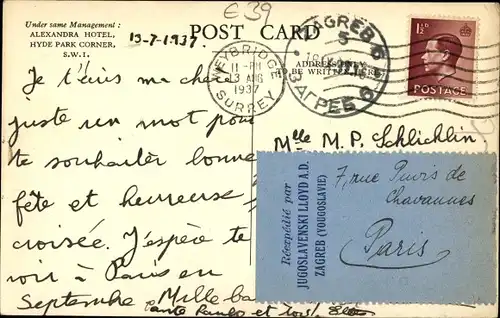 Under same Management:
ALEXANDRA HOTEL,
HYDE PARK CORNER,
S.W.1.
£39
POST CARD
13-7-1937.
ADDRESS ONLY
TO BE WRITTEN HERE
WEYBRIDGE
11-PM
13 AUG
1937
SURREY
ZAGREB 6
ЗАГРЕБ 6
1½D
POSTAGE
Je t'écris ma chère
juste un mot pour
te souhaiter bonne
fête et heureuse
croisée. J'espère te
voir à Paris en
Septembre Mille
et tous
Mlle M. P. Schlichlin
7, rue Puvis de
Chavannes
Paris
Réexpédié par
JUGOSLAVENSKI LLOYD A.D.
ZAGREB (YOUGOSLAVIE)